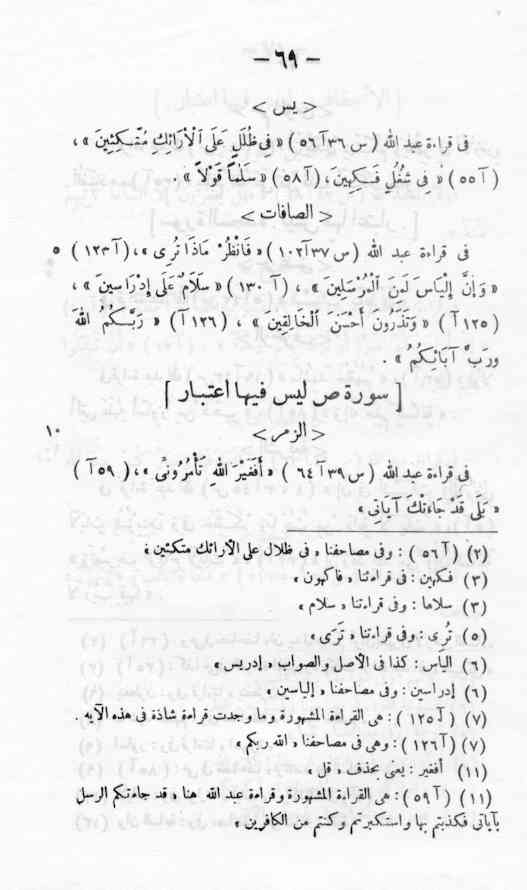 — ٦٩ —
< يس >
فى قراءة عبد الله (س ٣٦ آ ٥٦) « فِى ظُلَلٍ عَلَى ٱلْأَرَائِكِ مُتَّكِئِينَ » ،
(آ ٥٥) « فِى شُغُلٍ فَكِهِينَ ، (آ ٥٨) « سَلْماً قَوْلاً » .
< الصافات >
فى قراءة عبد الله (س ٣٧ آ ١٠٢) « فَٱنْظُرْ مَاذَا تُرِى » ، (آ ١٢٣) ٥
« وَإِنَّ إِلْيَاسَ لَمِنَ ٱلْمُرْسَلِينَ » ، (آ ١٣٠) « سَلَامٌ عَلَى إِدْرَاسِينَ » ،
(آ ١٢٥) « وَتَذَرُونَ أَحْسَنَ ٱلْخَالِقِينَ » ، (آ ١٢٦) « رَبَّكُمُ اللهَ
وَرَبَّ آبَائِكُمُ » .
[ سورة ص ليس فيها اعتبار ]
< الزمر > ١٠
فى قراءة عبد الله (س ٣٩ آ ٦٤) « أَفَغَيْرَ اللهِ تَأْمُرُونِّى » ، (آ ٥٩)
« بَلَى قَدْ جَاءَتْكَ آيَاتِى »
(٢) (آ ٥٦) : وفى مصاحفنا « فى ظلال على الأرائك متكئين »
(٣) فكهين : فى قراءتنا « فاكهون »
(٣) سلاما : وفى قراءتنا « سلام »
(٥) تُرِى : وفى قراءتنا « تَرَى »
(٦) الياس : كذا فى الأصل والصواب « إدريس »
(٦) إدراسين : وفى مصاحفنا « إلياسين »
(٧) (آ ١٢٥) : هى القراءة المشهورة وما وجدت قراءة شاذة فى هذه الآيه .
(٧) (آ ١٢٦) : وهى فى مصاحفنا « اللهَ ربكم »
(١١) أفغير : يعنى بحذف « قل »
(١١) (آ ٥٩) : هى القراءة المشهورة وقراءة عبد الله هنا « قد جاءتكم الرسل
بآياتى فكذبتم بها واستكبرتم وكنتم من الكافرين »